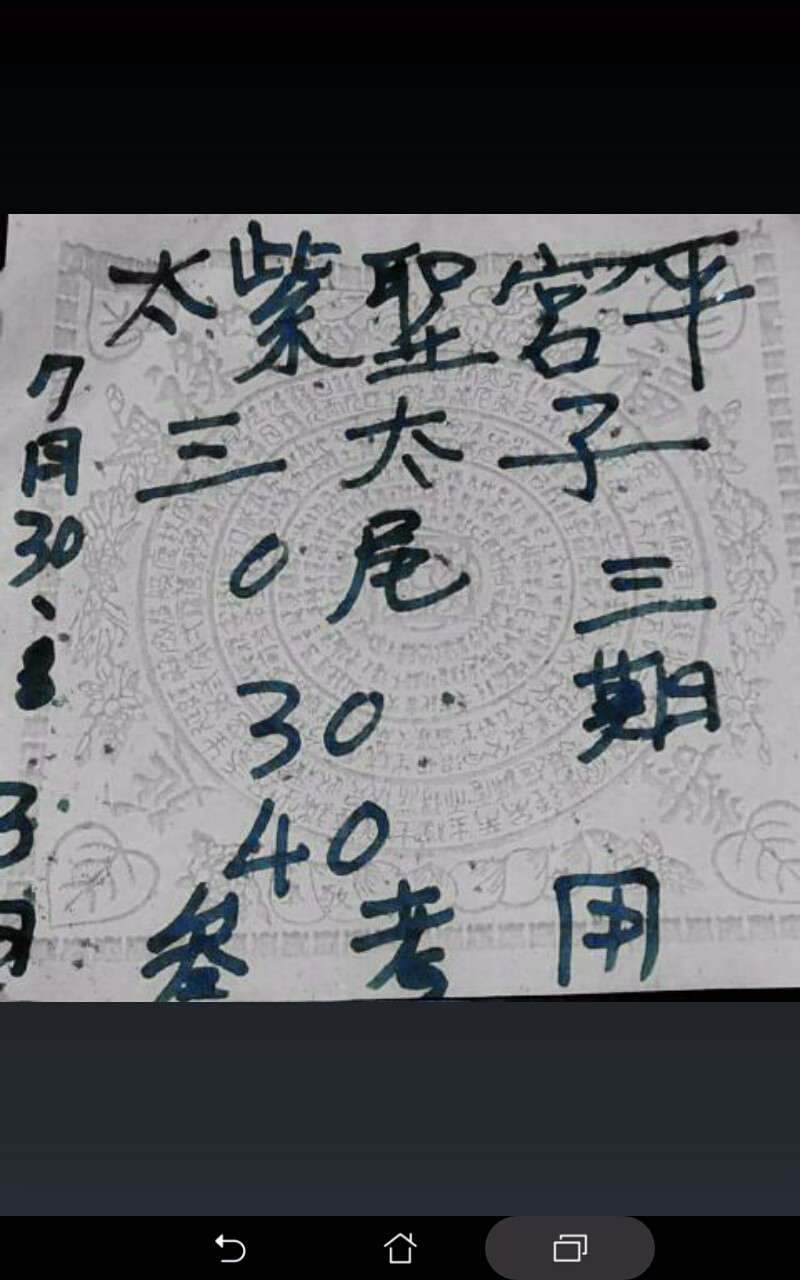 太紫聖宮平
三太子
0尾
三期
30
40
參考用
7月30、
3
月